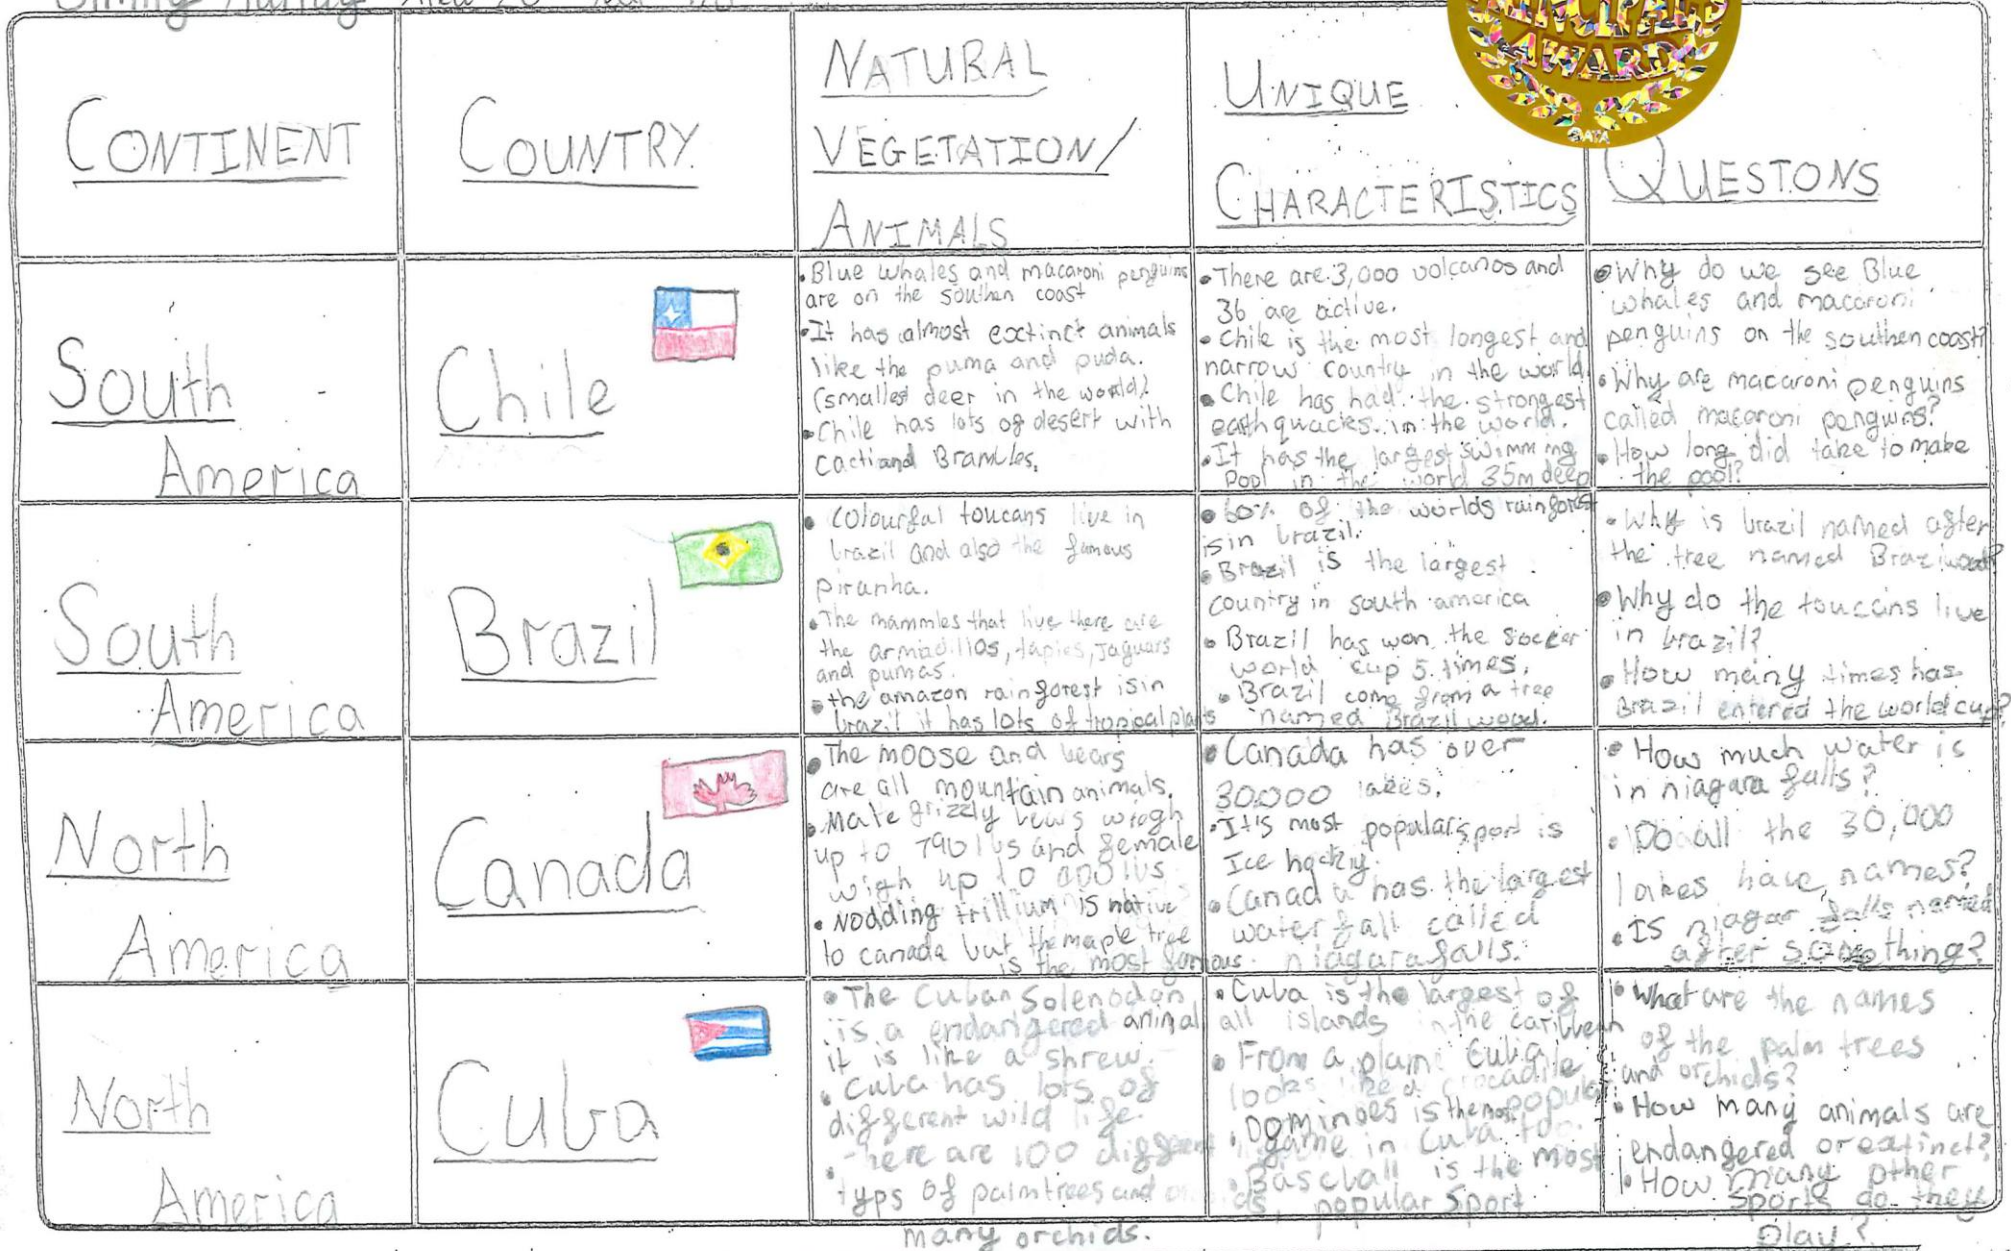 AWARD
CONTINENT
COUNTRY
NATURAL
VEGETATION/
ANIMALS
UNIQUE
CHARACTERISTICS
QUESTONS
South
America
Chile
• Blue whales and macaroni penguins
are on the southen coast
• It has almost extinct animals
like the puma and puda.
(smalled deer in the world)
• Chile has lots of desert with
Cacti and Brambles.
• There are 3,000 volcanos and
36 are active.
• Chile is the most longest and
narrow country in the world
• Chile has had the strongest
eathquackes in the world.
• It has the largest swimming
Pool in the world 35m deep
• Why do we see Blue
whales and macaroni
penguins on the southen coast?
• Why are macaroni penguins
called macaroni penguins?
• How long did take to make
the pool?
South
America
Brazil
• Colourful toucans live in
brazil and also the famous
piranha.
• The mammles that live there are
the armadillos, tapies, jaguars
and pumas.
• the amazon rainforest is in
brazil it has lots of tropical plants
• 60% of the worlds rainforest
is in brazil.
• Brazil is the largest
country in south america
• Brazil has won the soccer
world cup 5 times.
• Brazil come from a tree
named Brazil wood.
• Why is brazil named after
the tree named Braziwood?
• Why do the toucans live
in brazil?
• How many times has
Brazil entered the world cup?
North
America
Canada
• The moose and bears
are all mountain animals.
• Male grizzly bears wiegh
up to 790 lbs and female
wigh up to lbs
• Nodding trillium is native
to canada but the maple tree
is the most famous.
• Canada has over
30000 lakes.
• It's most popular sport is
Ice hocky.
• Canada has the largest
waterfall called
niagara falls.
• How much water is
in niagara falls?
• Do all the 30,000
lakes have names?
• Is niagar falls named
after something?
North
America
Cuba
• The Cuban Solenodon
is a endangered animal
it is like a shrew.
• Cuba has lots of
different wild life.
• There are 100 different
typs of palm trees and
many orchids.
• Cuba is the largest of
all islands in the caribbean
• From a plain Cuba
looks like a crocadile
• Dominoes is the most popular
game in Cuba too.
• Baseball is the most
popular sport
• What are the names
of the palm trees
and orchids?
• How many animals are
endangered or extinct?
• How many other
sports do they
play?